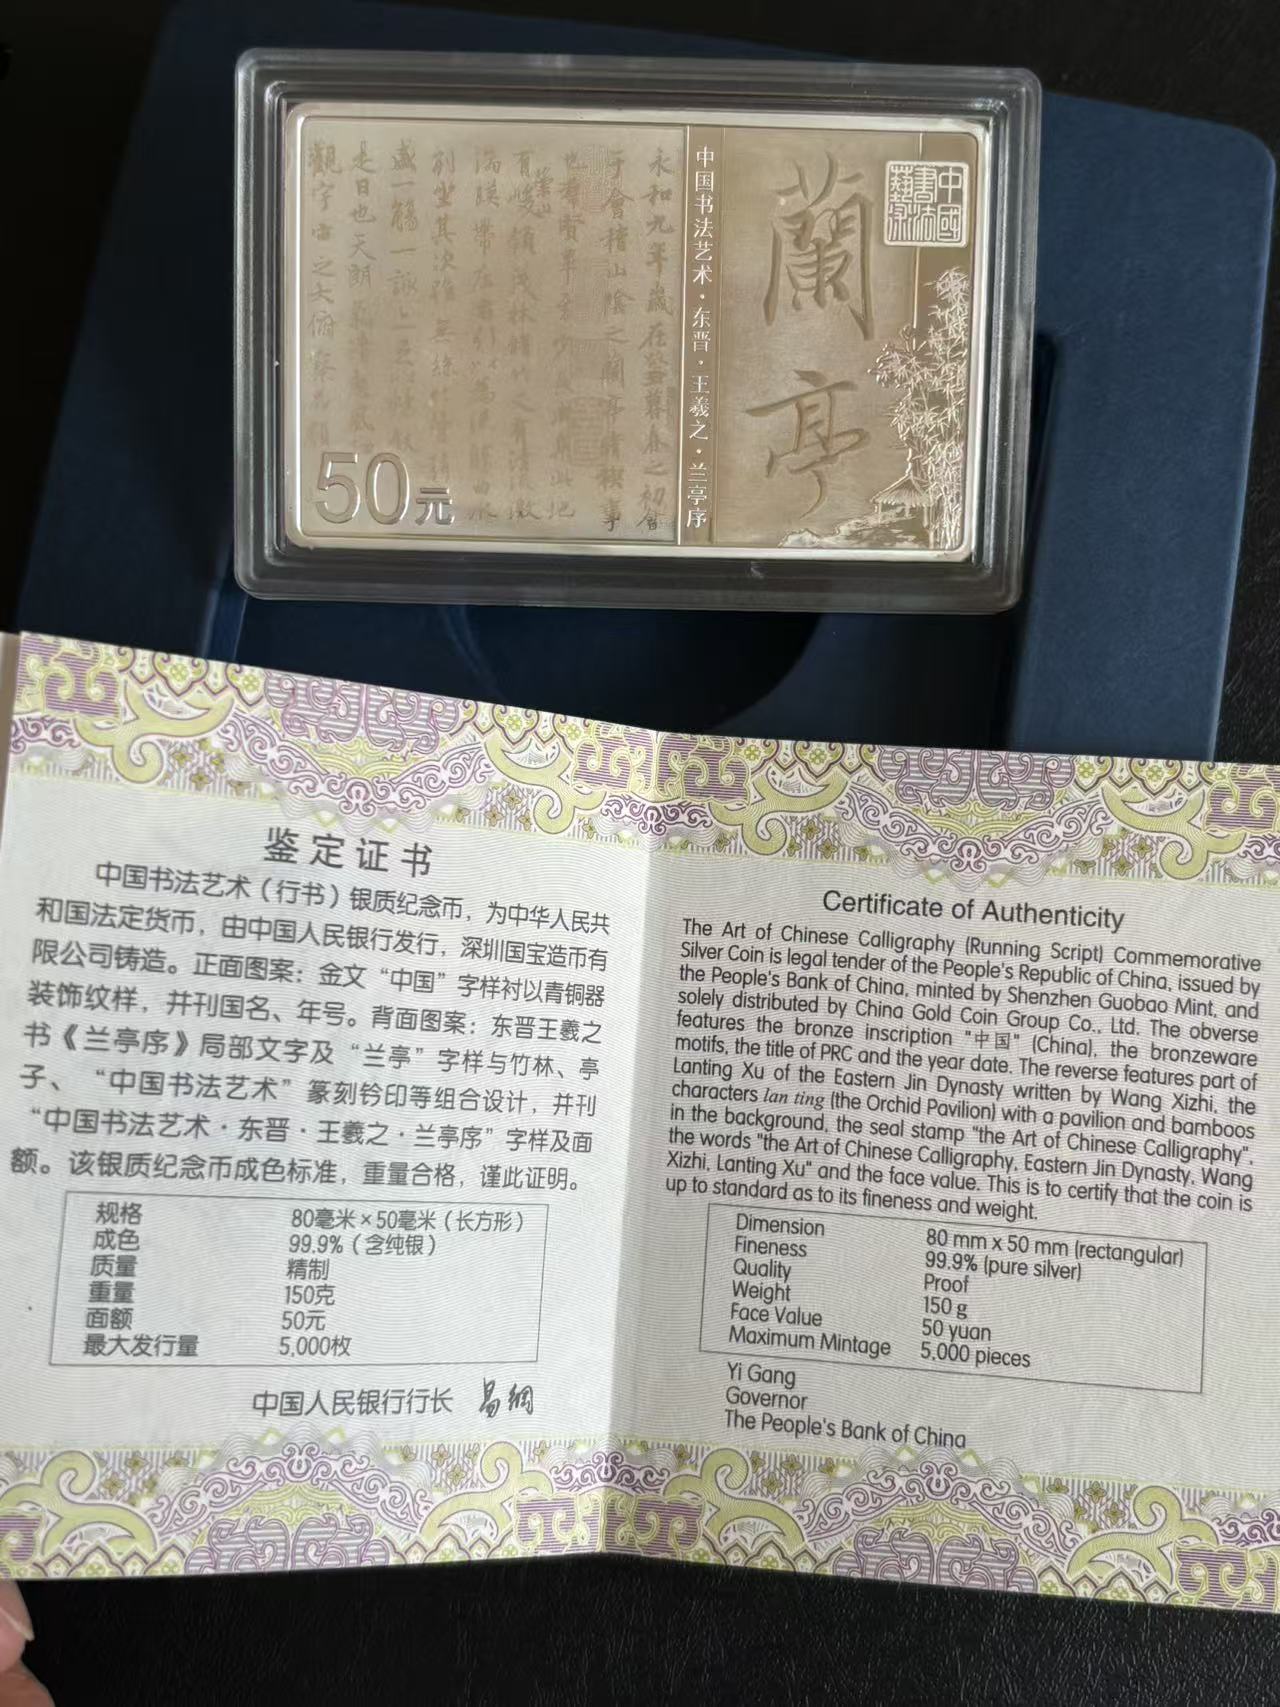 永和九年歲在癸丑暮春之初會
于會稽山陰之蘭亭脩禊事
也羣賢畢至少長咸集此地
有峻領茂林脩竹又有清流激
湍暎帶左右引以為流觴曲水
列坐其次雖無絲竹管絃
盛一觴一詠
是日也天朗氣清惠風
觀宇宙之大俯察品類
50元
中国书法艺术·东晋·王羲之·兰亭序
蘭亭
中國書法藝術
鉴定证书
中国书法艺术（行书）银质纪念币，为中华人民共
和国法定货币，由中国人民银行发行，深圳国宝造币有
限公司铸造。正面图案：金文“中国”字样衬以青铜器
装饰纹样，并刊国名、年号。背面图案：东晋王羲之
书《兰亭序》局部文字及“兰亭”字样与竹林、亭
子、“中国书法艺术”篆刻钤印等组合设计，并刊
“中国书法艺术·东晋·王羲之·兰亭序”字样及面
额。该银质纪念币成色标准，重量合格，谨此证明。
规格 80毫米×50毫米（长方形）
成色 99.9%（含纯银）
质量 精制
重量 150克
面额 50元
最大发行量 5,000枚
中国人民银行行长 易纲
Certificate of Authenticity
The Art of Chinese Calligraphy (Running Script) Commemorative
Silver Coin is legal tender of the People's Republic of China, issued by
the People's Bank of China, minted by Shenzhen Guobao Mint, and
solely distributed by China Gold Coin Group Co., Ltd. The obverse
features the bronze inscription "中国" (China), the bronzeware
motifs, the title of PRC and the year date. The reverse features part of
Lanting Xu of the Eastern Jin Dynasty written by Wang Xizhi, the
characters lan ting (the Orchid Pavilion) with a pavilion and bamboos
in the background, the seal stamp "the Art of Chinese Calligraphy",
the words "the Art of Chinese Calligraphy, Eastern Jin Dynasty, Wang
Xizhi, Lanting Xu" and the face value. This is to certify that the coin is
up to standard as to its fineness and weight.
Dimension 80 mm x 50 mm (rectangular)
Fineness 99.9% (pure silver)
Quality Proof
Weight 150 g
Face Value 50 yuan
Maximum Mintage 5,000 pieces
Yi Gang
Governor
The People's Bank of China